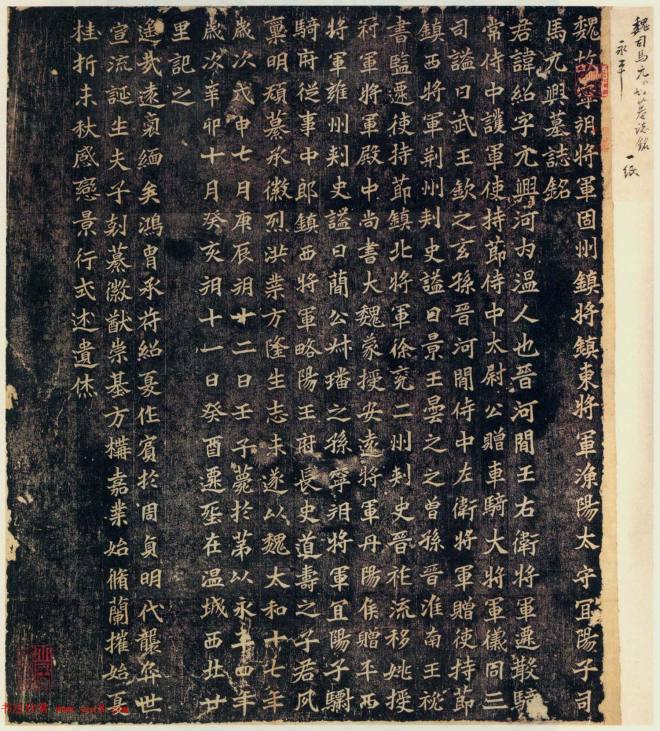 魏司馬元興墓誌銘 一紙
魏故寧朔將軍固州鎮將鎮東將軍漁陽太守宜陽子司
馬元興墓誌銘
君諱紹字元興河內溫人也晉河間王右衛將軍遷散騎
常侍中護軍使持節侍中太尉公贈車騎大將軍儀同三
司謚曰武王欽之玄孫晉河間侍中左衛將軍贈使持節
鎮西將軍荊州刺史謚曰景王曇之之曾孫晉淮南王祕
書監遷使持節鎮北將軍徐兗二州刺史晉祚流移姚授
冠軍將軍殿中尚書大魏蒙授安遠將軍丹陽侯贈平西
將軍雍州刺史謚曰簡公叔璠之孫寧朔將軍宜陽子驃
騎府從事中郎鎮西將軍略陽王府長史道壽之子君夙
稟明穎纂承徽烈洪業方隆生志未遂以魏太和十七年
歲次戊申七月庚辰朔廿二日壬子薨於第以永平四年
歲次辛卯十月癸亥朔十一日癸酉遷塋在溫城西北廿
里記之
遙哉遠裔緬矣鴻冑承符紹夏作賓於周貞明代襲弈世
宣流誕生夫子剋纂徽猷崇基方構嘉業始脩蘭摧始夏
桂折未秋感戀景行式述遺休